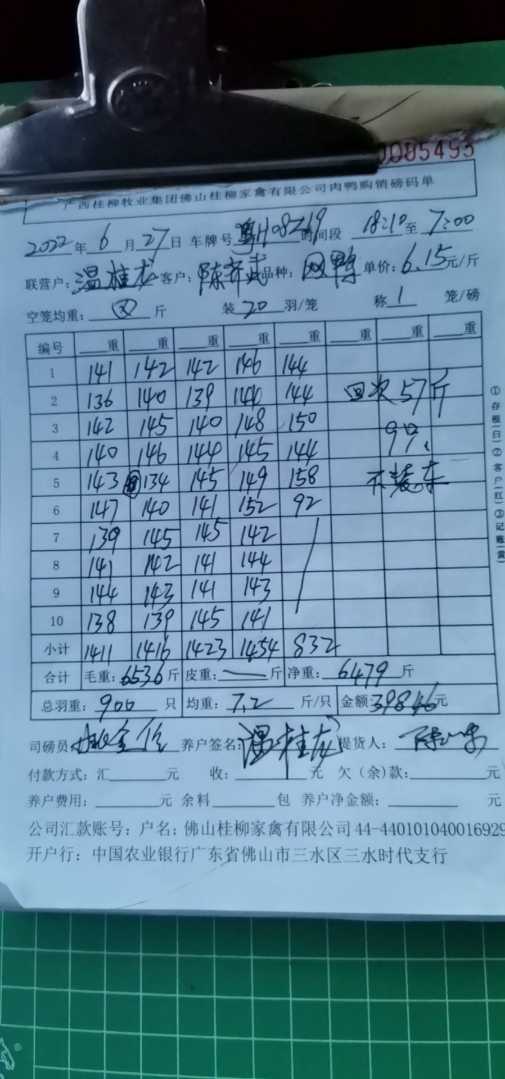 0085493
广西桂柳牧业集团佛山桂柳家禽有限公司肉鸭购销磅码单
2022年6月27日 车牌号 时间段 18:10至7:00
联营户:温桂龙 客户: 品种: 单价:6.15元/斤
空笼均重: 斤 装20羽/笼 称1笼/磅
编号 重 重 重 重 重 重 重 重
1 141 142 142 146 144
2 136 140 139 140 144 回次57斤
3 142 145 140 148 150 9只
4 140 146 144 145 144
5 143 134 145 149 158 不装车
6 147 140 141 152 92
7 139 145 145 142
8 141 142 141 144
9 144 143 141 143
10 138 139 145 141
小计 1411 1416 1423 1454 832
合计 毛重:6536斤 皮重: 斤 净重:6479斤
总羽重:900只 均重:7.2斤/只 金额39846元
司磅员 养户签名:温桂龙 提货人:
付款方式:汇 元 收: 元 欠(余)款: 元
养户费用: 元 余料 包 养户净金额: 元
公司汇款账号:户名:佛山桂柳家禽有限公司 44-440101040016929
开户行:中国农业银行广东省佛山市三水区三水时代支行
①存根(白)②客户(红)③记账(黄)